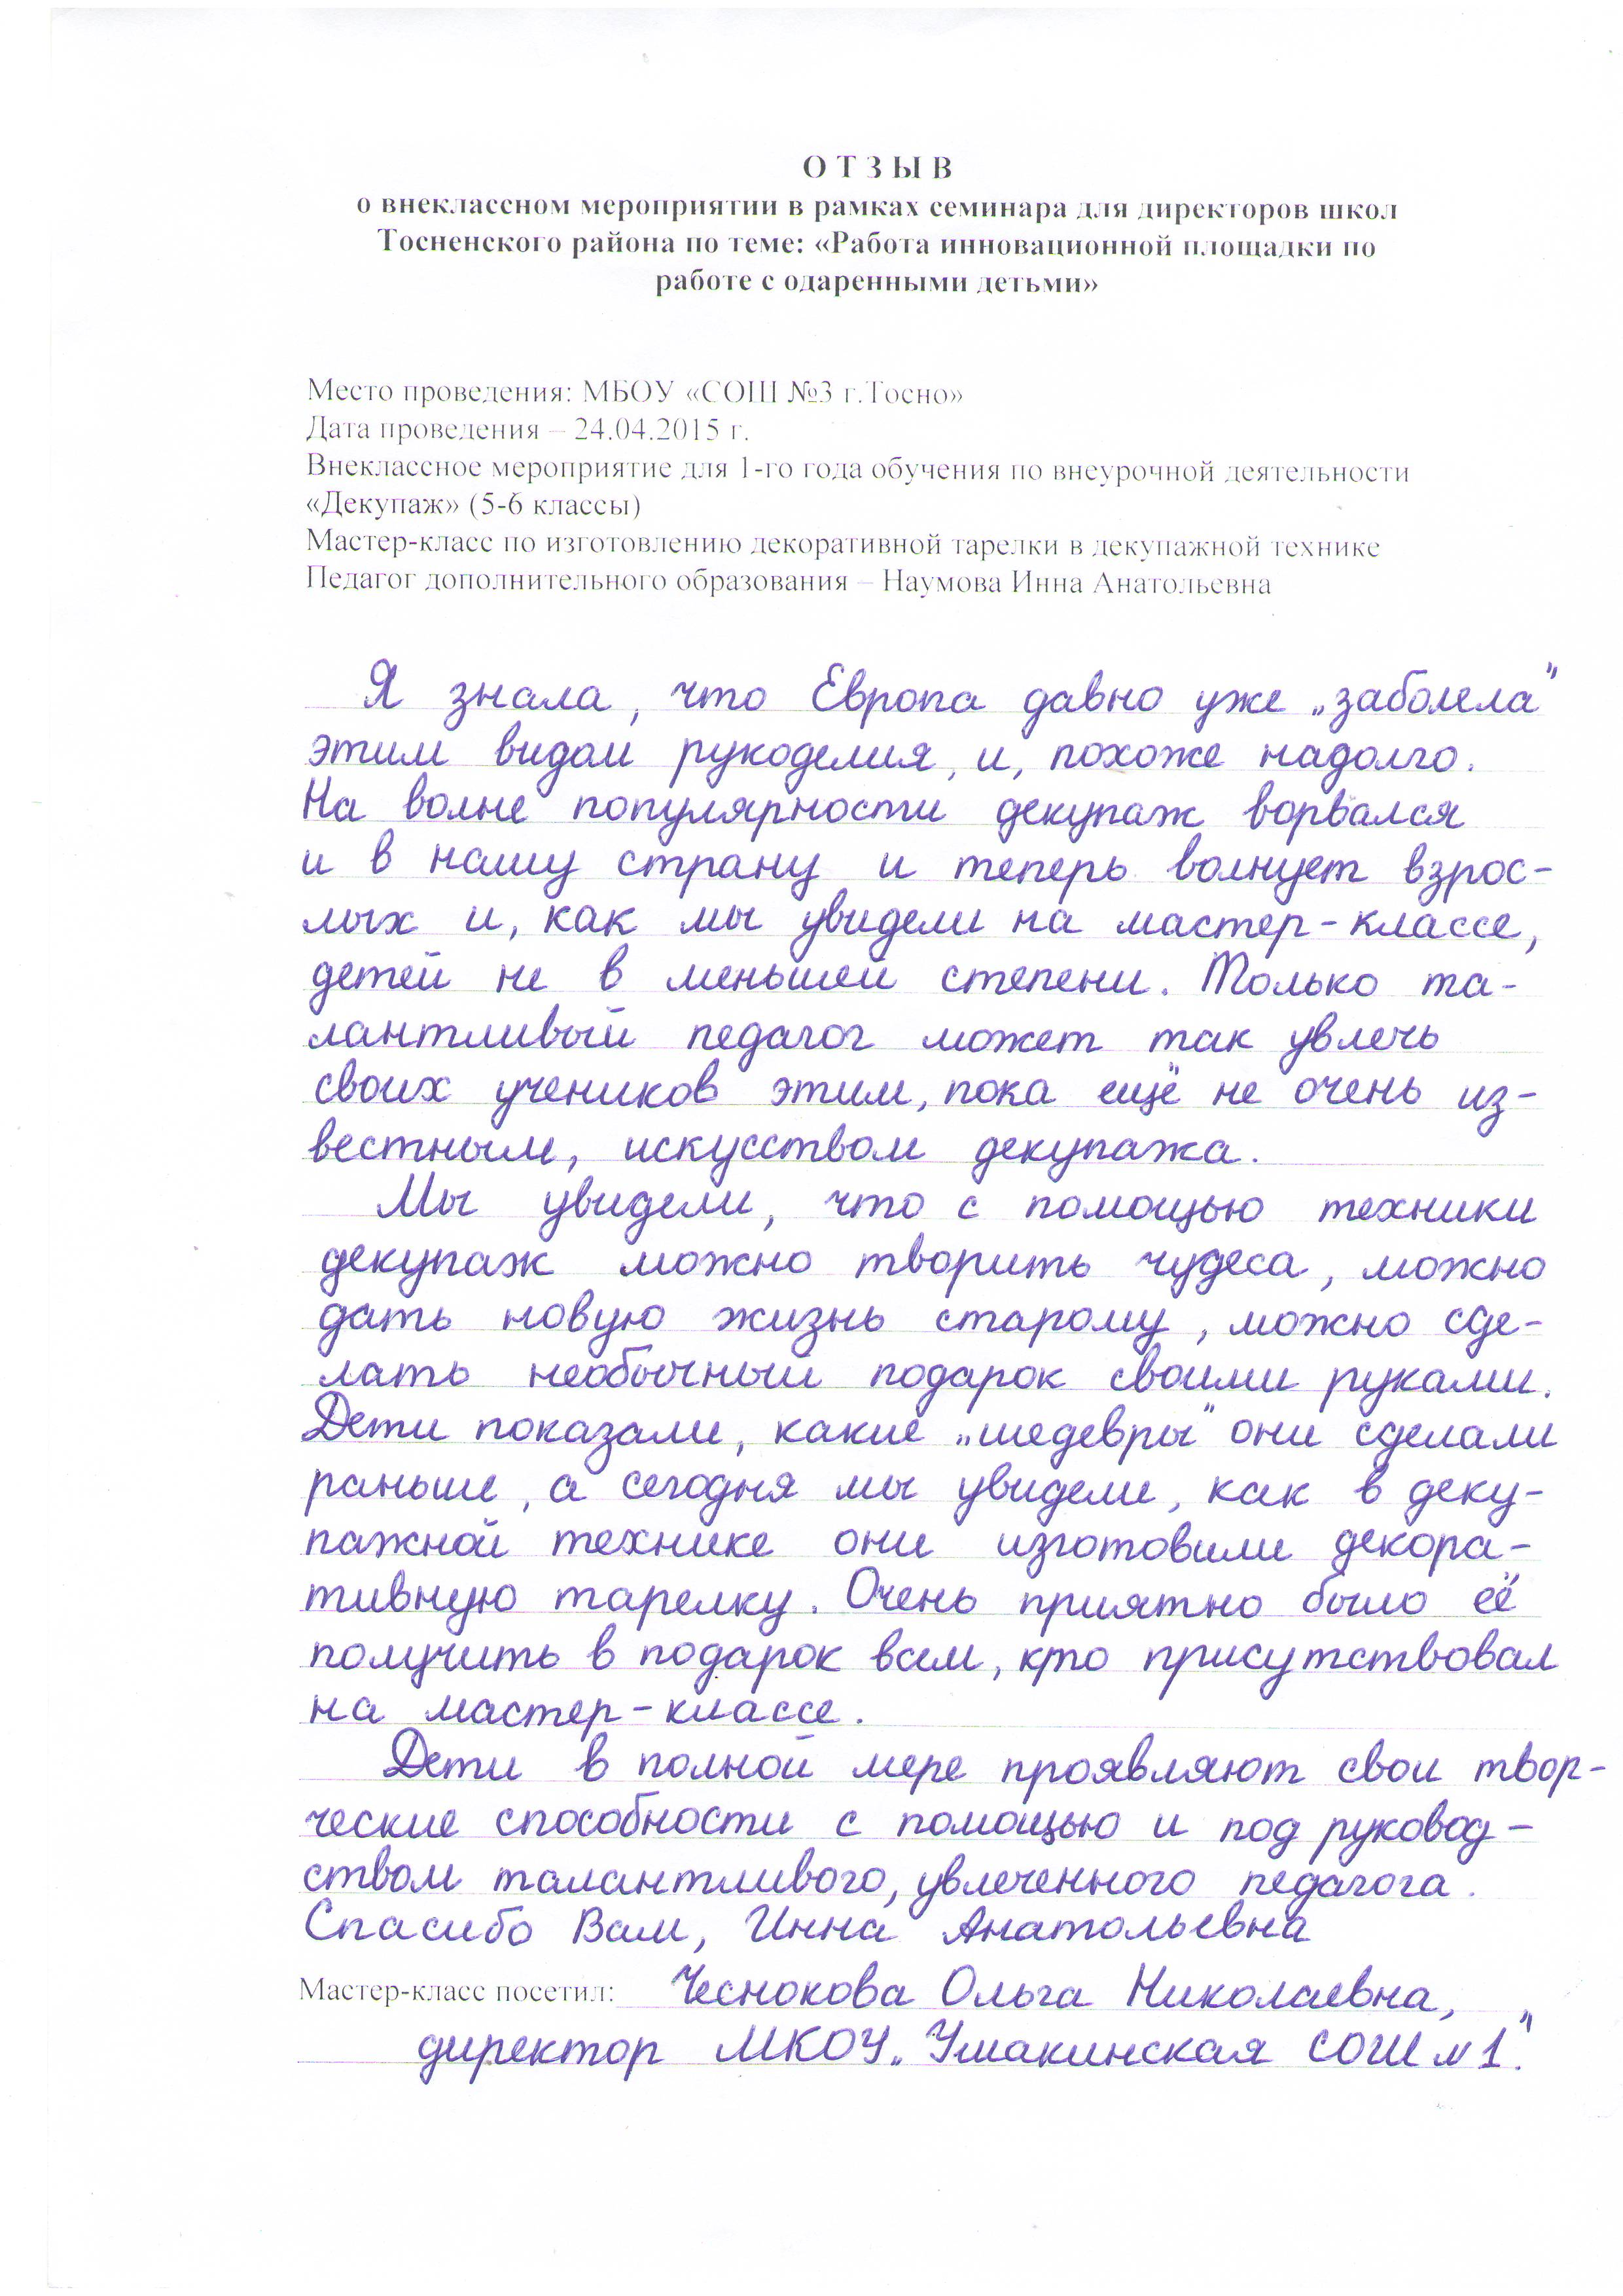 О Т З Ы В
о внеклассном мероприятии в рамках семинара для директоров школ
Тосненского района по теме: «Работа инновационной площадки по
работе с одаренными детьми»
Место проведения: МБОУ «СОШ №3 г.Тосно»
Дата проведения – 24.04.2015 г.
Внеклассное мероприятие для 1-го года обучения по внеурочной деятельности
«Декупаж» (5-6 классы)
Мастер-класс по изготовлению декоративной тарелки в декупажной технике
Педагог дополнительного образования – Наумова Инна Анатольевна
Я знала, что Европа давно уже „заболела”
этим видом рукоделия, и, похоже надолго.
На волне популярности декупаж ворвался
и в нашу страну и теперь волнует взрос-
лых и, как мы увидели на мастер-классе,
детей не в меньшей степени. Только та-
лантливый педагог может так увлечь
своих учеников этим, пока ещё не очень из-
вестным, искусством декупажа.
Мы увидели, что с помощью техники
декупаж можно творить чудеса, можно
дать новую жизнь старому, можно сде-
лать необычный подарок своими руками.
Дети показали, какие „шедевры” они сделали
раньше, а сегодня мы увидели, как в деку-
пажной технике они изготовили декора-
тивную тарелку. Очень приятно было её
получить в подарок всем, кто присутствовал
на мастер-классе.
Дети в полной мере проявляют свои твор-
ческие способности с помощью и под руковод-
ством талантливого, увлеченного педагога.
Спасибо Вам, Инна Анатольевна
Мастер-класс посетил: Чеснокова Ольга Николаевна,
директор МКОУ „Ушакинская СОШ №1”.